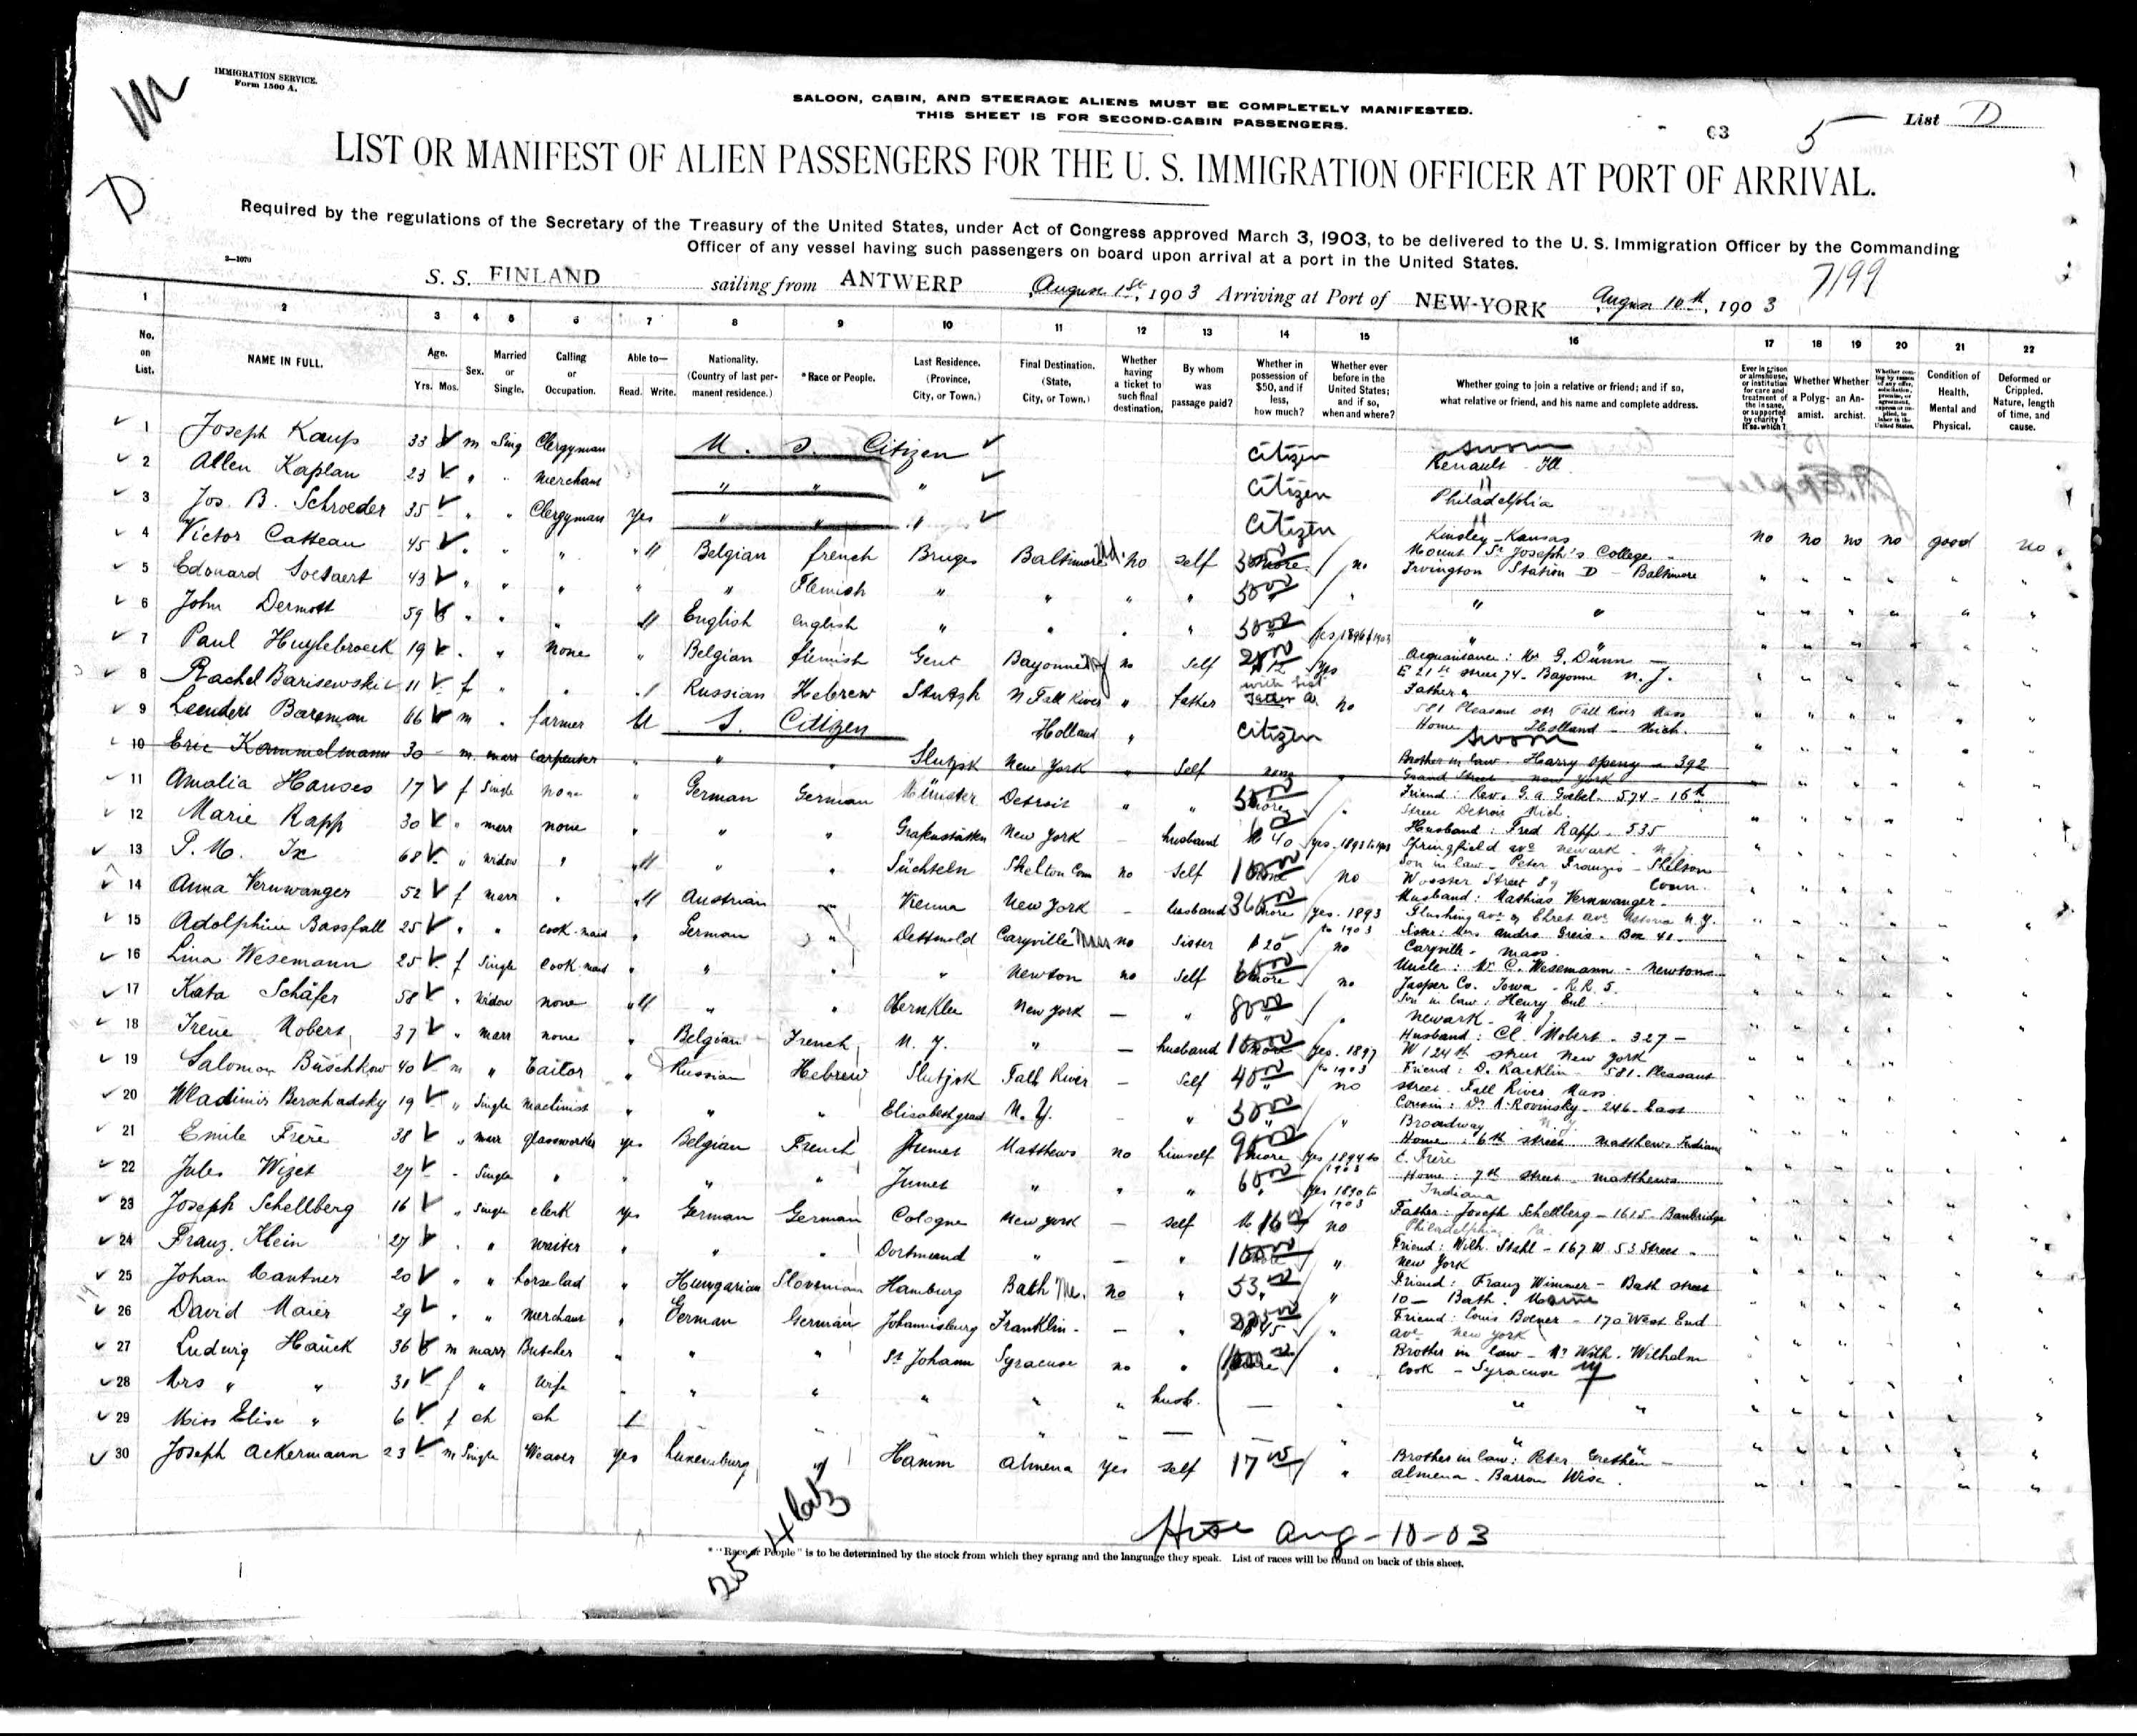 IMMIGRATION SERVICE.
Form 1500 A.
M
D
SALOON, CABIN, AND STEERAGE ALIENS MUST BE COMPLETELY MANIFESTED.
THIS SHEET IS FOR SECOND-CABIN PASSENGERS.
63 5 List D
LIST OR MANIFEST OF ALIEN PASSENGERS FOR THE U. S. IMMIGRATION OFFICER AT PORT OF ARRIVAL.
Required by the regulations of the Secretary of the Treasury of the United States, under Act of Congress approved March 3, 1903, to be delivered to the U. S. Immigration Officer by the Commanding
Officer of any vessel having such passengers on board upon arrival at a port in the United States.
7199
S. S. FINLAND sailing from ANTWERP August 1st, 1903 Arriving at Port of NEW-YORK August 10th, 1903
1 2 3 4 5 6 7 8 9 10 11 12 13 14 15 16 17 18 19 20 21 22
No. on List. NAME IN FULL. Age. Yrs. Mos. Sex. Married or Single. Calling or Occupation. Able to— Read. Write. Nationality. (Country of last permanent residence.) *Race or People. Last Residence. (Province, City, or Town.) Final Destination. (State, City, or Town.) Whether having a ticket to such final destination. By whom was passage paid? Whether in possession of $50, and if less, how much? Whether ever before in the United States; and if so, when and where? Whether going to join a relative or friend; and if so, what relative or friend, and his name and complete address. Ever in prison or almshouse, or institution for care and treatment of the insane, or supported by charity? If so, which? Whether a Polygamist. Whether an Anarchist. Condition of Health, Mental and Physical. Deformed or Crippled. Nature, length of time, and cause.
1 Joseph Kaup 33 m Sing Clergyman U. S. Citizen citizen sworn Renault Ill
2 Allen Kaplan 23 " " merchant " " " citizen " Philadelphia
3 Jos. B. Schroeder 35 " " Clergyman yes " " " citizen " Kinsley Kansas
4 Victor Catteau 45 " " " " Belgian french Bruges Baltimore Md. no self no Mount St Joseph's College Irvington Station D - Baltimore no no no no good no
5 Edouard Soetaert 43 " " " " " Flemish " " " " 50 " " "
6 John Dermott 59 " " " " English english " " " " 50 yes 1896 1903 " "
7 Paul Huylebroeck 19 " " none " Belgian flemish Gent Bayonne NJ no self yes acquaintance: Mr G. Dünn E 21st street 74 - Bayonne N. J.
8 Rachel Barisewski 11 f " " Russian Hebrew Slutzk Fall River " father no Father 581 Pleasant str Fall River Mass
9 Leendert Bareman 66 m " farmer U. S. Citizen Holland " citizen Home Holland - Mich. sworn
10 Eric Kammelmann 30 m marr carpenter " " " Slutzk New York " Self none Brother in law - Harry Sperry - 392 Grand Street - new york
11 Amalia Hanses 17 f Single none " German German Münster Detroit " " 50 " Friend: Rev. G. A. Goebel - 574 - 16th Street Detroit Mich.
12 Marie Rapp 30 " marr none " " " Grafenstaden New York - husband 40 yes Husband: Fred Rapp - 535 Springfield ave newark - N. J.
13 P. M. Ix 68 " widow " " " " Süchteln Shelton Conn no Self 100 no Son in law - Peter Franzis - Shelton Wooster Street 89 Conn.
14 Anna Vernwanger 52 f marr " " Austrian Vienna New York - husband yes - 1893 to 1903 Husband: Mathias Vernwanger - Flushing ave & Ehret ave Astoria N. Y.
15 Adolphine Bassfall 25 " " cook-maid " German " Dettmold Caryville Mass no Sister $ 20 no Sister: Mrs Andre Greis - Box 41 - Caryville - Mass.
16 Lina Wesemann 25 f Single Cook-maid " " " " Newton no Self no Uncle: Mr C. Wesemann - Newton Jasper Co. Iowa - R. R. 5.
17 Kata Schäfer 58 " widow none " " " New York - " 80 " Son in law: Henry Newark - N. J.
18 Irene Mobert 37 " marr none " Belgian French N. Y. " - husband 100 yes - 1897 to 1903 Husband: Cl. Mobert - 327 - W 124th street New York
19 Salomon Büschkow 40 m " Tailor " Russian Hebrew Slutzk Fall River - Self 40 no Friend: D. Racklin 581 - Pleasant street - Fall River Mass.
20 Wladimir Berschadsky 19 " Single machinist " " " Elisabethgrad N. Y. - " 50 " Cousin: Dr A. Rovinsky - 246 - East Broadway N. Y.
21 Emile Frère 38 " marr glassworker yes Belgian French Jumet Matthews no himself 90 yes 1894 to 1903 Home: 6th street Matthews Indiana E. Frère
22 Jules Wizet 27 " Single " " " " Jumet " " " 60 yes 1890 to 1903 Home: 7th street - Matthews Indiana
23 Joseph Schellberg 16 " Single clerk yes German German Cologne New York - self no Father: Joseph Schellberg - 1615 - Bambridge Philadelphia Pa.
24 Franz Klein 27 " " waiter " " " Dortmund " - " 100 " Friend: Wilh. Stahl - 167 W 53 Street - New York
25 Johan Mantner 20 " " horse lad " Hungarian Slovenian Hamburg Bath Me. no " 53 " Friend: Franz Wimmer - Bath street 10 - Bath. Maine
26 David Maier 29 " " merchant " German German Johannisburg Franklin - - " " Friend: Louis Boener - 170 West End ave New York
27 Ludwig Hauck 36 m marr Butcher " " " St Johann Syracuse no " " Brother in law - Mr Wilh. Wilhelm Cook - Syracuse NY
28 Mrs " " 31 f " wife " " " " " " husb. - " " "
29 Miss Elise " 6 f ch ch " " " " - - " " "
30 Joseph Ackermann 23 m Single Weaver yes Luxemburg " Hamm Almena yes self 17 " Brother in law: Peter Grethen - Almena - Barron Wisc.
Aug - 10 - 03
* "Race or People" is to be determined by the stock from which they sprang and the language they speak. List of races will be found on back of this sheet.